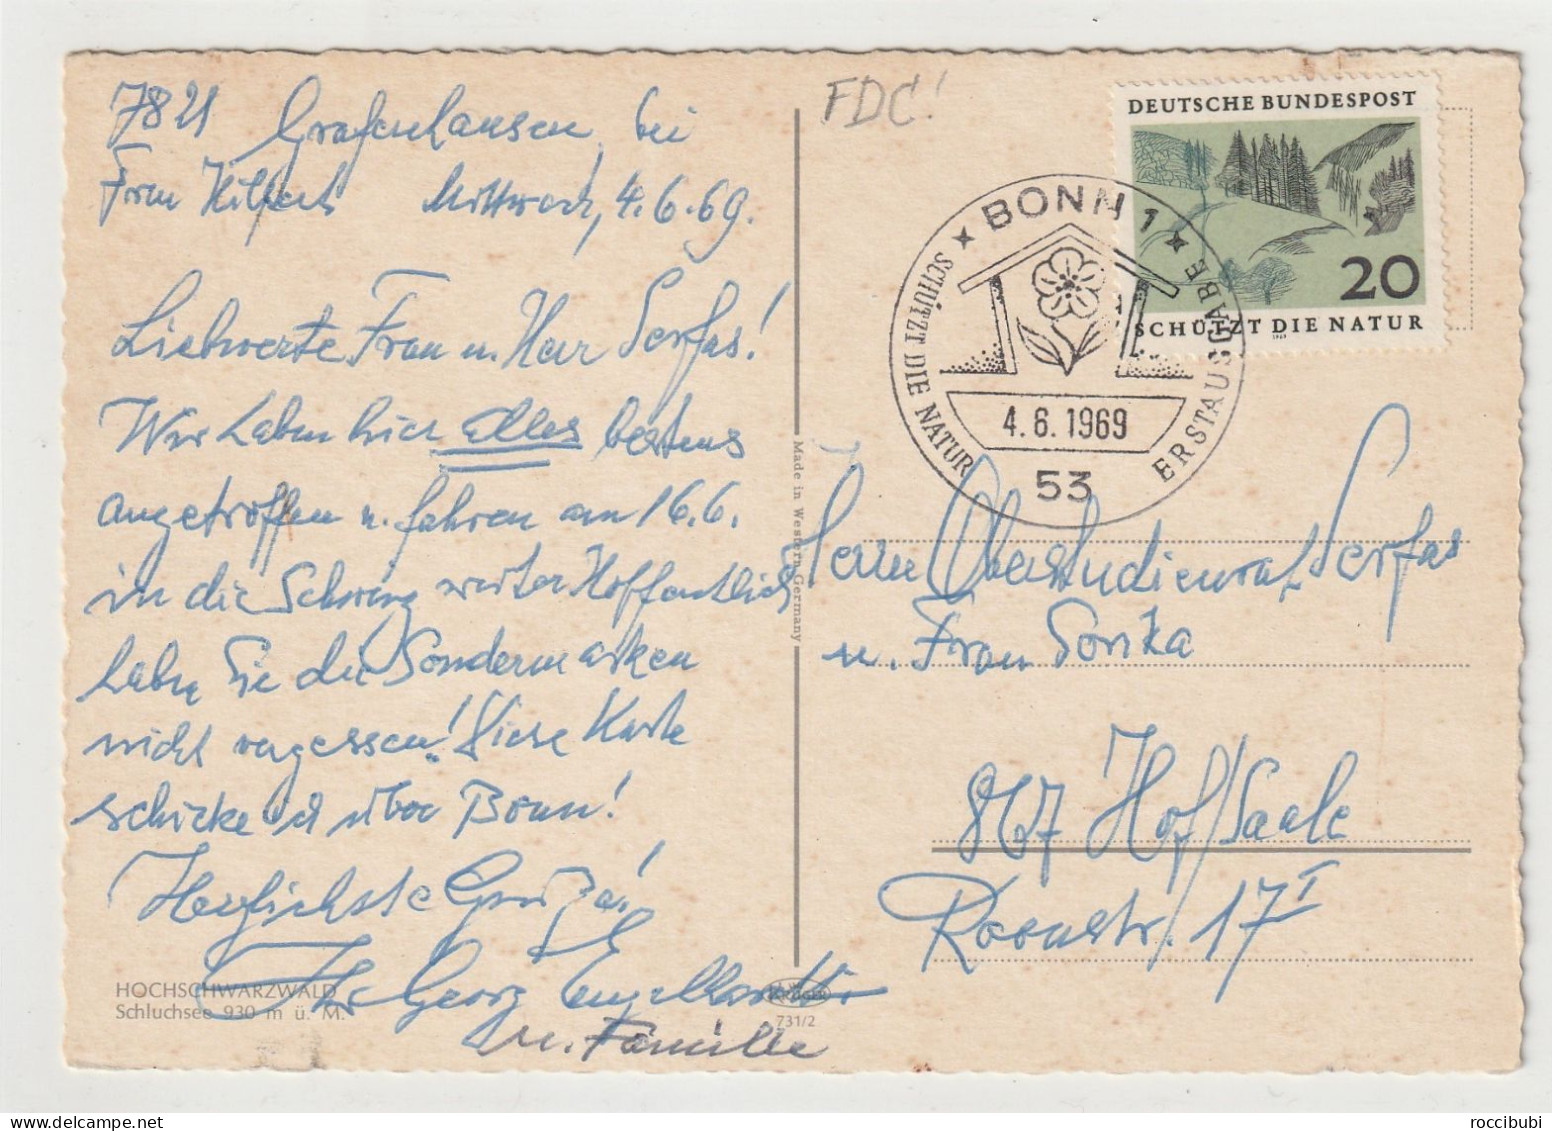 7821 Grafenhausen, bei
Frau Hilpert Mittwoch, 4.6.69.
Liebwerte Frau u. Herr Serfas!
Wir haben hier alles bestens
angetroffen u. fahren am 16.6.
in die Schweiz weiter. Hoffentlich
haben Sie die Sondermarken
nicht vergessen! Diese Karte
schicke ich über Bonn!
Herzlichste Grüße!
Ihr Georg
u. Familie
HOCHSCHWARZWALD
Schluchsee 930 m ü. M.
KRÜGER
731/2
Made in Western Germany
FDC!
DEUTSCHE BUNDESPOST
20
SCHÜTZT DIE NATUR
1969
BONN 1
SCHÜTZT DIE NATUR
ERSTAUSGABE
4.6.1969
53
Herrn Oberstudienrat Serfas
u. Frau
867 Hof/Saale
Roonstr. 17 I
roccibubi